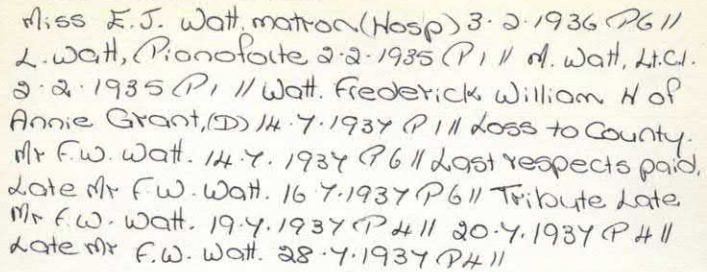 Miss E.J. Watt, matron (Hosp) 3.2.1936 P6 //
L. Watt, Pianoforte 2.2.1935 P1 // M. Watt, Lt.Cl.
2.2.1935 P1 // Watt. Frederick William H of
Annie Grant, (D) 14.7.1937 P1 // Loss to County.
Mr F.W. Watt. 14.7.1937 P6 // Last respects paid.
Late Mr F.W. Watt. 16 7.1937 P6 // Tribute Late.
Mr F.W. Watt. 19.7.1937 P4 // 20.7.1937 P4 //
Late Mr F.W. Watt. 28.7.1937 P4 //